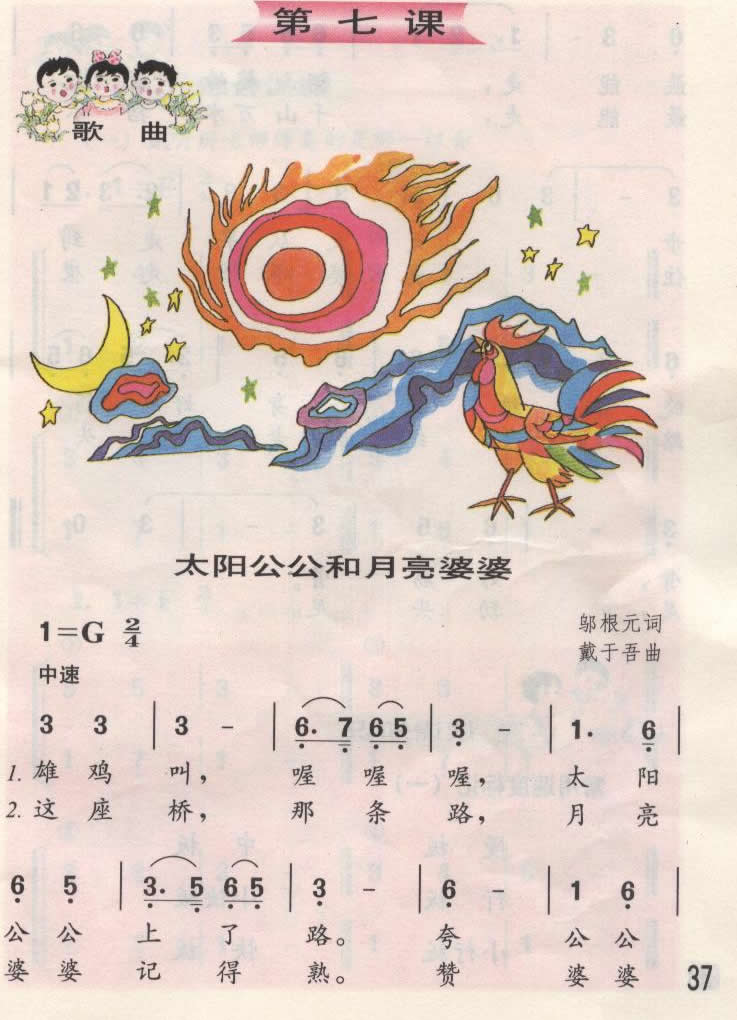 第七课
歌曲
太阳公公和月亮婆婆
1=G 2/4
邬根元词
戴于吾曲
中速
3 3 | 3 - | 6. 7 6 5 | 3 - | 1. 6 |
1. 雄 鸡 叫， 喔 喔 喔， 太 阳
2. 这 座 桥， 那 条 路， 月 亮
6 5 | 3. 5 6 5 | 3 - | 6 - | 1 6 |
公 公 上 了 路。 夸 公 公
婆 婆 记 得 熟。 赞 婆 婆
37